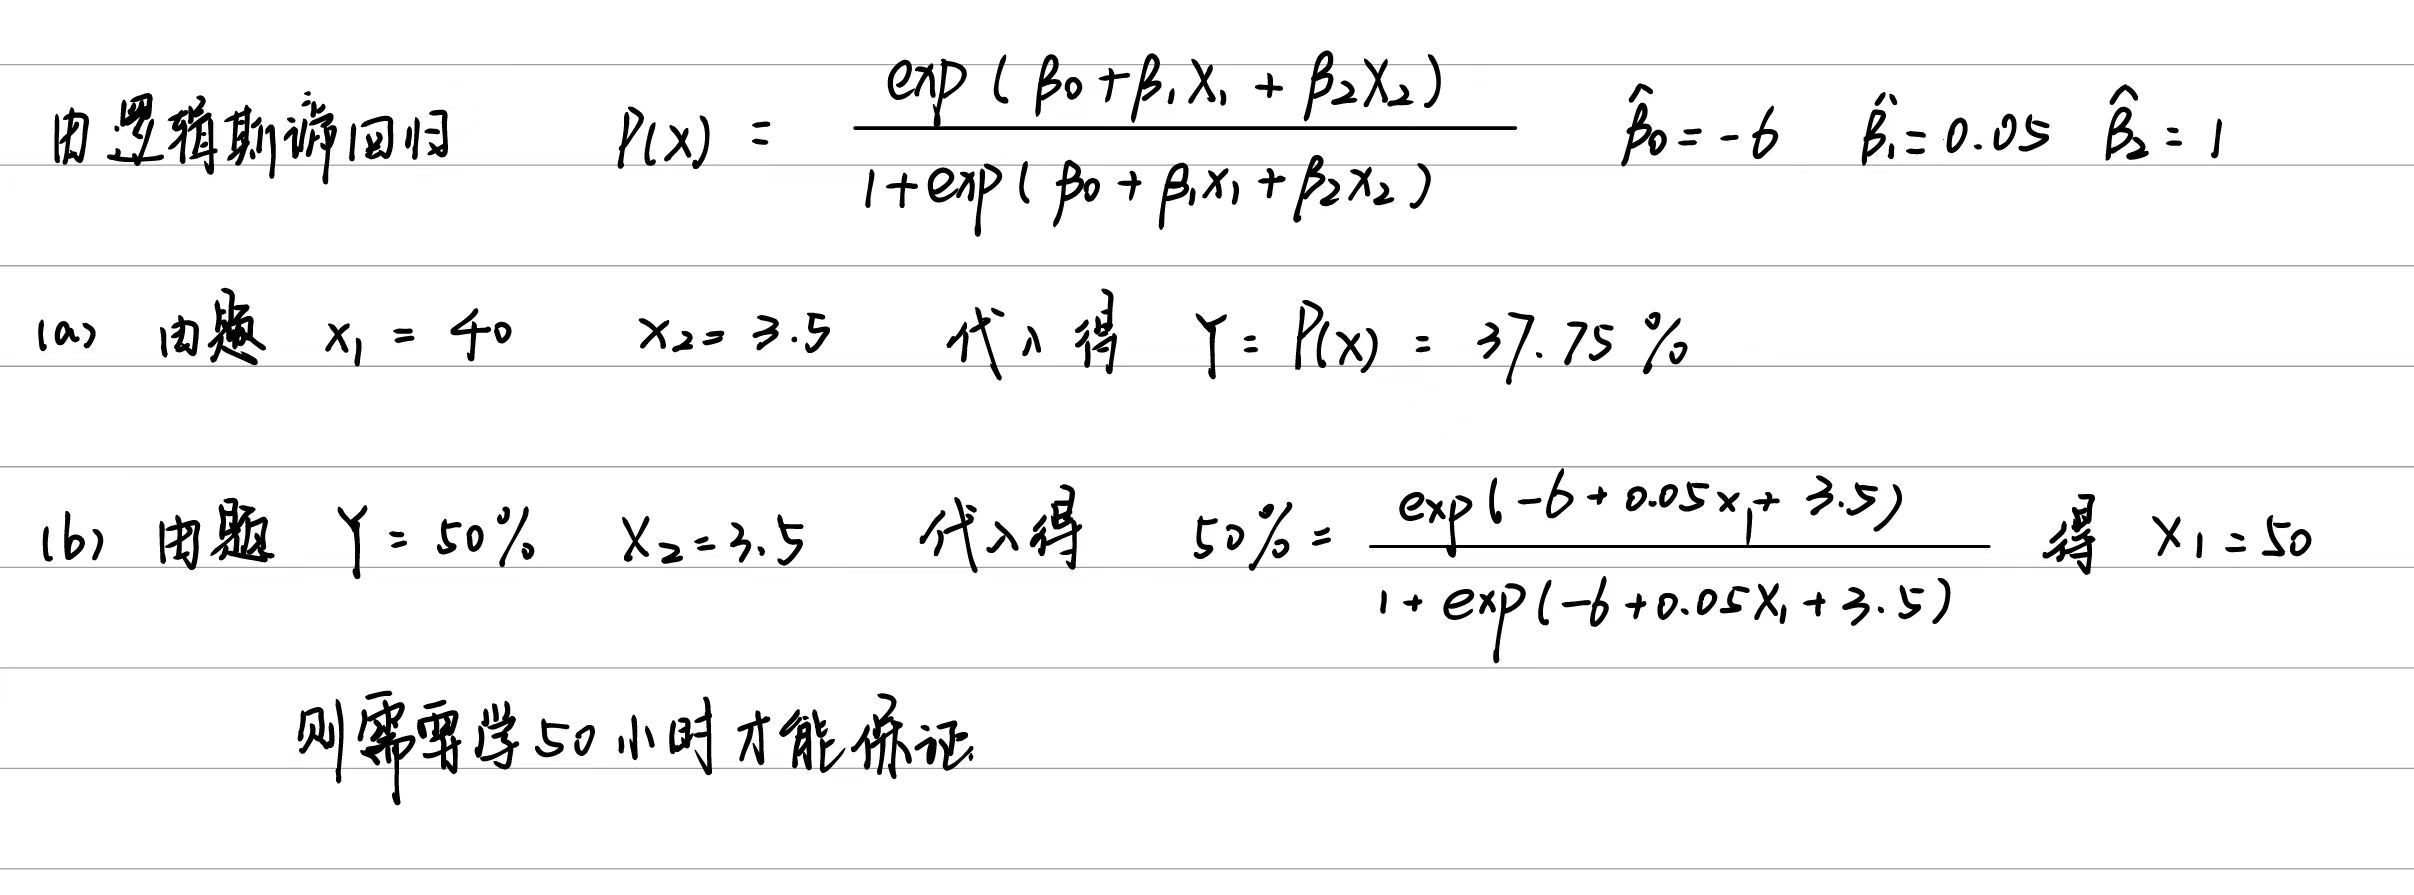 由逻辑斯谛回归 P(X) = exp(β₀+β₁X₁+β₂X₂) / 1+exp(β₀+β₁x₁+β₂x₂) β̂₀=-6 β̂₁=0.05 β̂₂=1
(a) 由题 x₁=40 x₂=3.5 代入得 Y=P(X)=37.75%
(b) 由题 Y=50% X₂=3.5 代入得 50%= exp(-6+0.05x₁+3.5) / 1+exp(-6+0.05X₁+3.5) 得 X₁=50
则需要学50小时才能保证